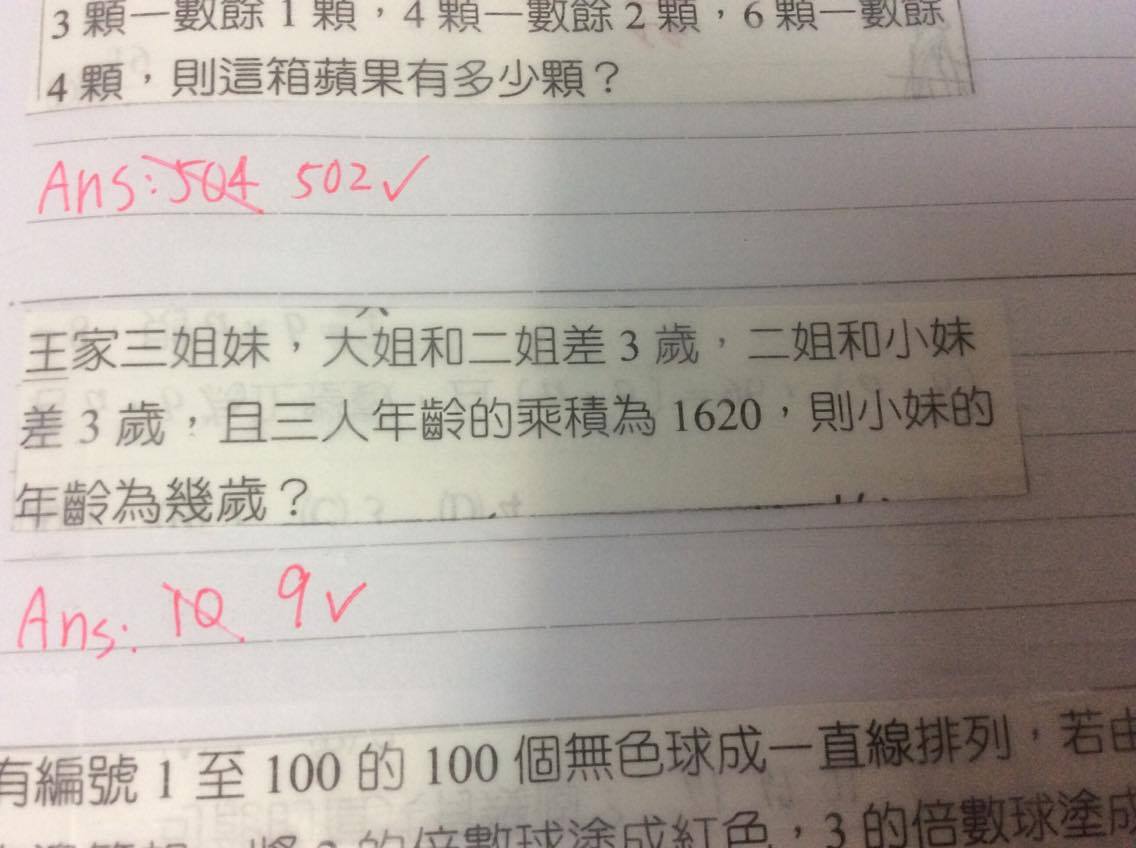 3 顆一數餘 1 顆，4 顆一數餘 2 顆，6 顆一數餘
4 顆，則這箱蘋果有多少顆？
Ans: 504 502✓
王家三姐妹，大姐和二姐差 3 歲，二姐和小妹
差 3 歲，且三人年齡的乘積為 1620，則小妹的
年齡為幾歲？
Ans: 10 9✓
有編號 1 至 100 的 100 個無色球成一直線排列，若由
的倍數球塗成紅色，3 的倍數球塗成